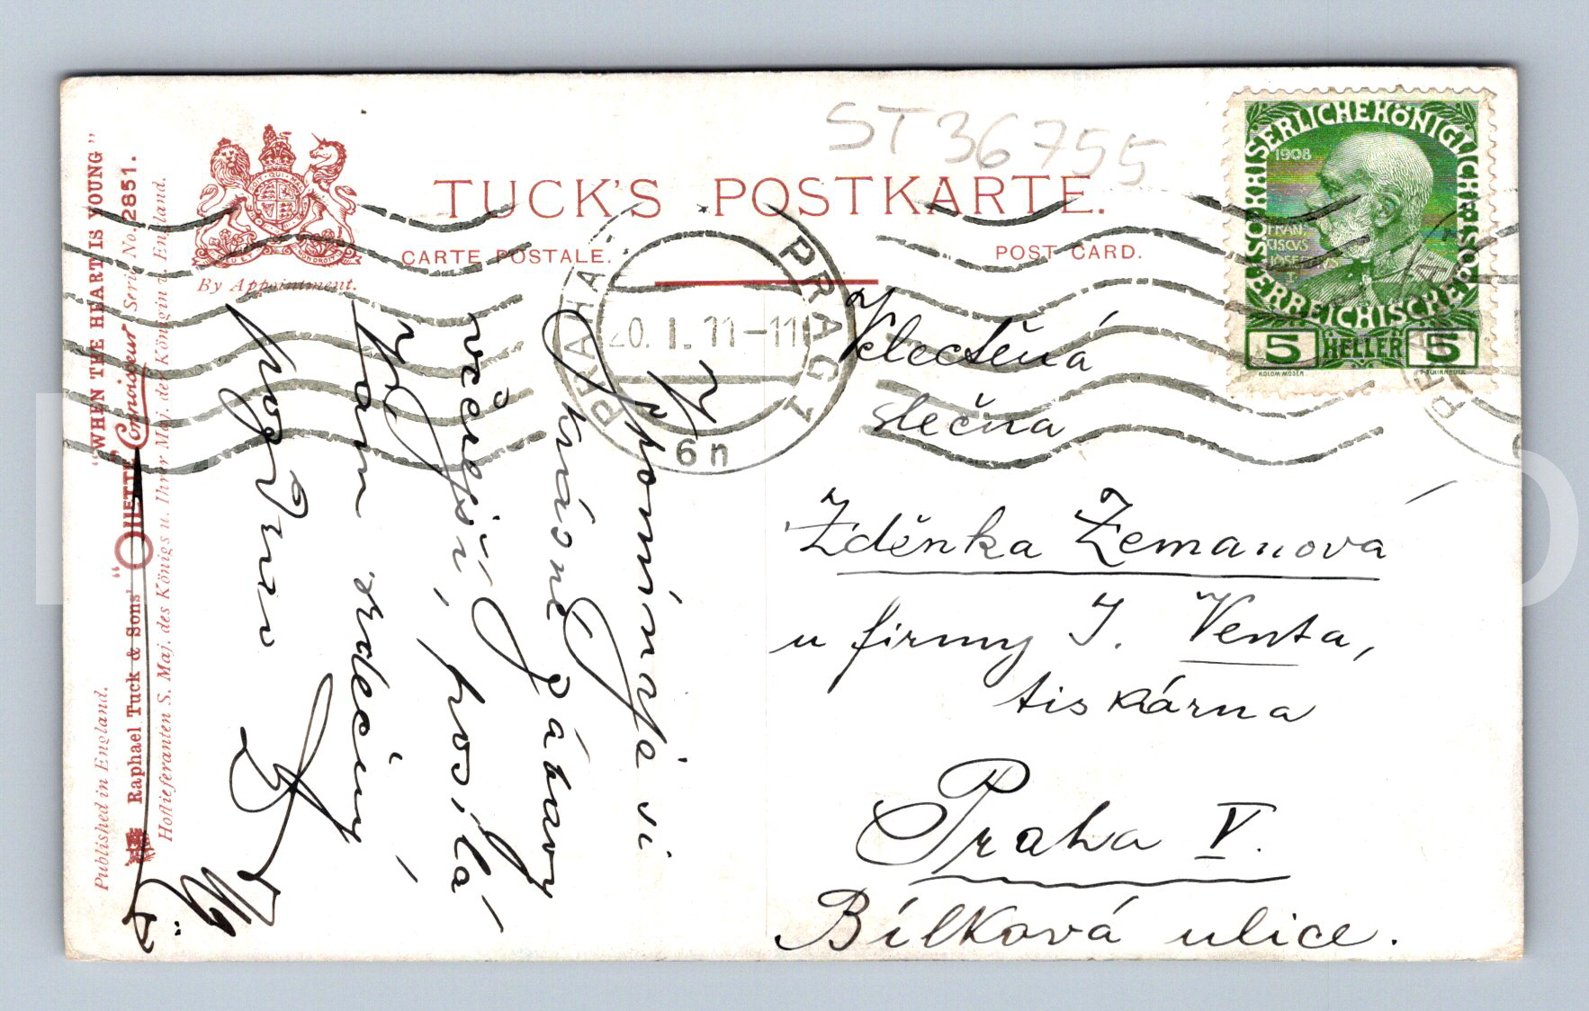 ST36755
TUCK'S POSTKARTE.
CARTE POSTALE.
POST CARD.
By Appointment.
"WHEN THE HEART IS YOUNG"
"OILETTE" Connoisseur Serie No. 2851.
Raphael Tuck & Sons'
Hoflieferanten S. Maj. des Königs u. Ihrer Maj. der Königin v. England.
Published in England.
PRAHA
PRAG 1
20. I. 11-11
6n
KAISERLICHE KÖNIGLICHE
ÖSTERREICHISCHE
1908
FRAN
CISCUS
JOSEPHUS
5 HELLER 5
Velectěná
slečna
Zděnka Zemanová
u firmy J. Venta,
tiskárna
Praha V.
Bílková ulice.
Vzpomínaje si
krásné zábavy
včerejší, posílá
Vám srdečný
pozdrav